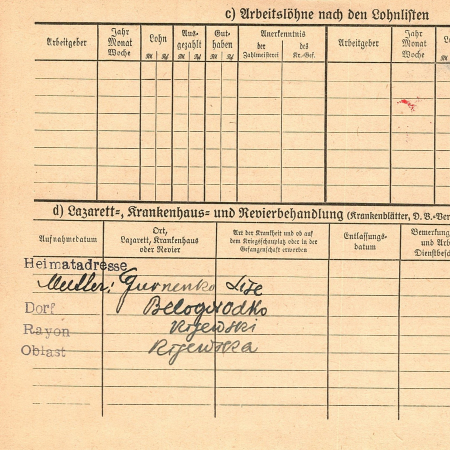 c) Arbeitslöhne nach den Lohnlisten
Arbeitgeber Jahr Monat Woche Lohn Ausgezahlt Guthaben Anerkenntnis der Zahlmeisterei des Kr.-Gef. Arbeitgeber Jahr Monat Woche
d) Lazarett-, Krankenhaus- und Revierbehandlung (Krankenblätter, D. B.-Ver
Aufnahmedatum Ort, Lazarett, Krankenhaus oder Revier Art der Krankheit und ob auf dem Kriegsschauplatz oder in der Gefangenschaft erworben Entlassungs-datum Bemerkung und Arb Dienstbesch
Heimatadresse
Mutter: Gurnenko Lise
Dorf Belogorodko
Rayon Kijewski
Oblast Kijewska